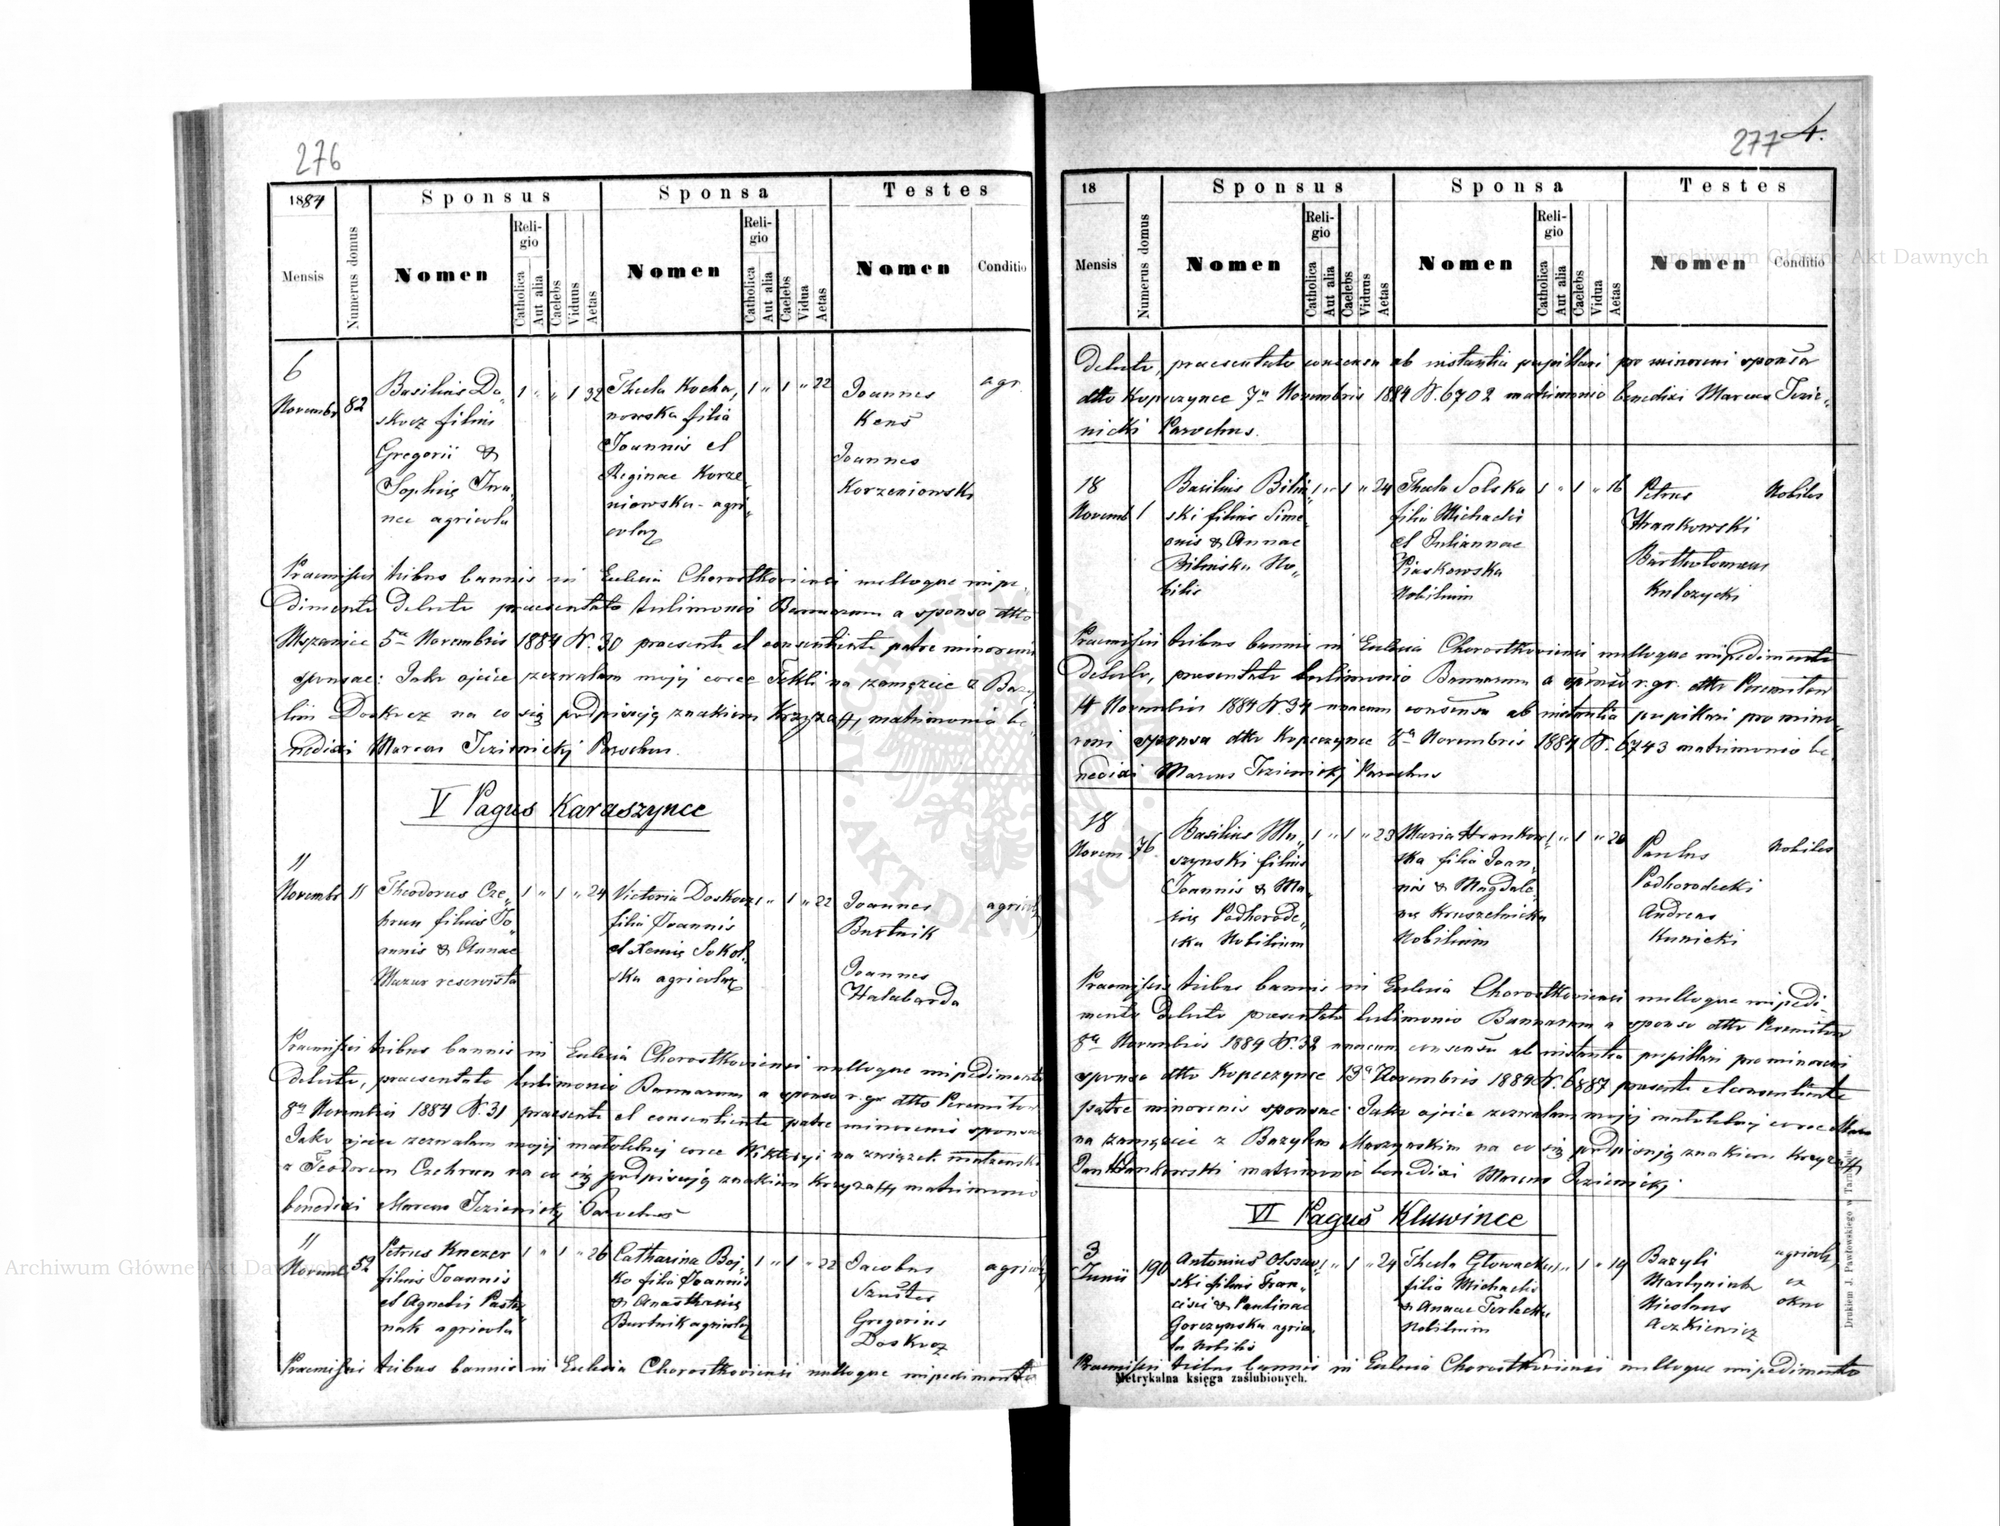 276
1884
Mensis
Numerus domus
Sponsus
Nomen
Religio
Catholica
Aut alia
Caelebs
Viduus
Aetas
Sponsa
Nomen
Religio
Catholica
Aut alia
Caelebs
Vidua
Aetas
Testes
Nomen
Conditio
6
Novembr 82
Basilius Do„
skocz filius
Gregorii &
Sophię Iwa„
nec agricola
1 „ „ 1 32
Thecla Kocha„
nowska filia
Joannis et
Reginae Korze„
niowska - agri„
colaę
1 „ 1 „ 22
Joannes
Kenś
Joannes
Korzeniowski
agr.
Praemissis tribus bannis in Ecclesia Chorostkoviensi nulloque impe„
dimento detecto praesentato testimonio Bannorum a sponso dtto
Mszaniec 5ta Novembris 1884 N. 30 praesente et consentiente patre minorenis
sponsae: Jako ojciec zezwalam mojej corce Tekli na zamęzcie z Bazy
lim Doskocz na co się podpisuję znakiem Krzyża ///, matrimonio be„
nedixi Marcus Izienickij Parochus.
V Pagus Karaszynce
11
Novembr 11
Theodorus Cze„
hrun filius Jo„
annis & Annae
Mazur reservista
1 „ 1 „ 24
Victoria Doskocz
filia Joannis
et Xenię Sokol„
ska agricolaę
1 „ 1 „ 22
Joannes
Burtnik
Joannes
Halabarda
agricolę
Praemissis tribus bannis in Ecclesia Chorostkoviensi nulloque impedimento
detecto, praesentato testimonio Bannorum a sponso r. gr. dtto Peremiłow
8va Novembris 1884 N. 31 praesente et consentiente patre minorenis sponsae
Jako ojciec zezwalam mojej małoletnej corce Wiktoryi na związek małzenski
z Teodorem Czehrun na co się podpisuję znakiem Krzyża /// matrimonio
benedixi Marcus Izienickij Parochus
11
Novemb 52
Petrus Knezer
filius Joannis
et Agnetis Paster„
nak agricola
1 „ 1 „ 26
Catharina Boj„
ko filia Joannis
& Anastasię
Burtnik agricolaę
1 „ 1 „ 22
Jacobus
Szuster
Gregorius
Doskocz
agricolę
Praemissis tribus bannis in Ecclesia Chorostkoviensi nulloque impedimento
277 4.
18
Mensis
Numerus domus
Sponsus
Nomen
Religio
Catholica
Aut alia
Caelebs
Viduus
Aetas
Sponsa
Nomen
Religio
Catholica
Aut alia
Caelebs
Vidua
Aetas
Testes
Nomen
Conditio
detecto, praesentato consensu ab instantia pupillari pro minoreni sponsa
dtto Kopeczynce 7a Novembris 1884 N. 6702 matrimonio benedixi Marcus Izie„
nicki Parochus.
18
Novemb 1
Basilius Bilin„
ski filius Sime„
onis & Annae
Bilinska No„
bilis
1 „ 1 „ 24
Thecla Solska
filia Michaelis
et Juliannae
Piaskowska
Nobilium
1 „ 1 „ 16
Petrus
Hrankowski
Bartholomeus
Kulczycki
Nobiles
Praemissis tribus bannis in Ecclesia Chorostkoviensi nulloque impedimento
detecto, praesentato testimonio Bannorum a sponso r. gr. dtto Peremiłow
14 Novembris 1884 N. 34 unacum consensu ab instantia pupillari pro mino„
reni sponsa dtto Kopeczynce 8va Novembris 1884 N. 6743 matrimonio be„
nedixi Marcus Izienickij Parochus
18
Novem 76
Basilius Mu„
szynski filius
Joannis & Ma„
rię Podhorode„
cka Nobilium
1 „ 1 „ 23
Maria Hrankow„
ska filia Joan„
nis & Magdale„
nę Kruszelnicka
Nobilium
1 „ 1 „ 20
Paulus
Podhorodecki
Andreas
Kunicki
Nobiles
Praemissis tribus bannis in Ecclesia Chorostkoviensi nulloque impedi„
mento detecto praesentato testimonio Bannorum a sponso dtto Peremiłow
8va Novembris 1884 N. 32 unacum consensu ab instantia pupillari pro minoreni
sponso dtto Kopeczynce 13a Novembris 1884 N. 6887 praesente et consentiente
patre minorenis sponsae: Jako ojciec zezwalam mojej małoletnej corce
na zamęzcie z Bazylem Muszynskim na co się podpisuję znakiem Krzyża ///
Jan Hrankowski matrimonio benedixi Marcus Izienickij.
VI Pagus Kluwince
3
Junii 190
Antonius Olszew„
ski filius Fran„
cisci & Paulinae
Gorczynska agrico„
la Nobilis
1 „ 1 „ 24
Thecla Głowacka
filia Michaelis
& Annae Terlecka
Nobilium
1 „ 1 „ 19
Bazyli
Martyniuk
Nicolaus
Aczkiewicz
agricolę
ex
okno
Praemissis tribus bannis in Ecclesia Chorostkoviensi nulloque impedimento
Metrykalna księga zaślubionych.
Drukiem J. Pawłowskiego w Tarnopolu.
Archiwum Główne Akt Dawnych
Archiwum Główne Akt Dawnych